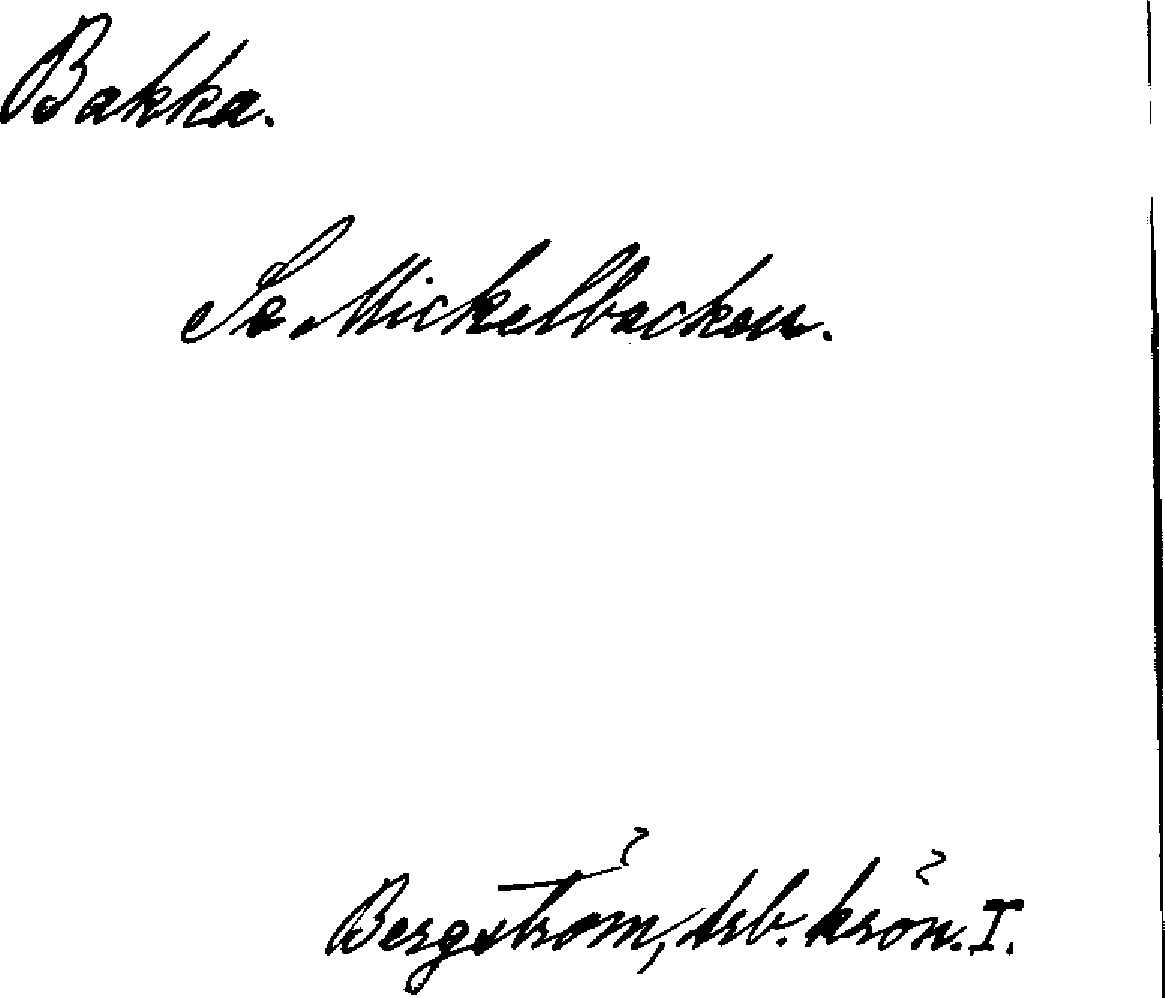 Bakka.
Se Mickelbacken.
Bergström, Arb. krön. I.